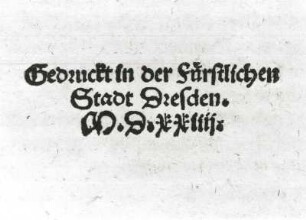 Gedruckt in der Fürstlichen
Stadt Dresden.
M.D.XXiiij.